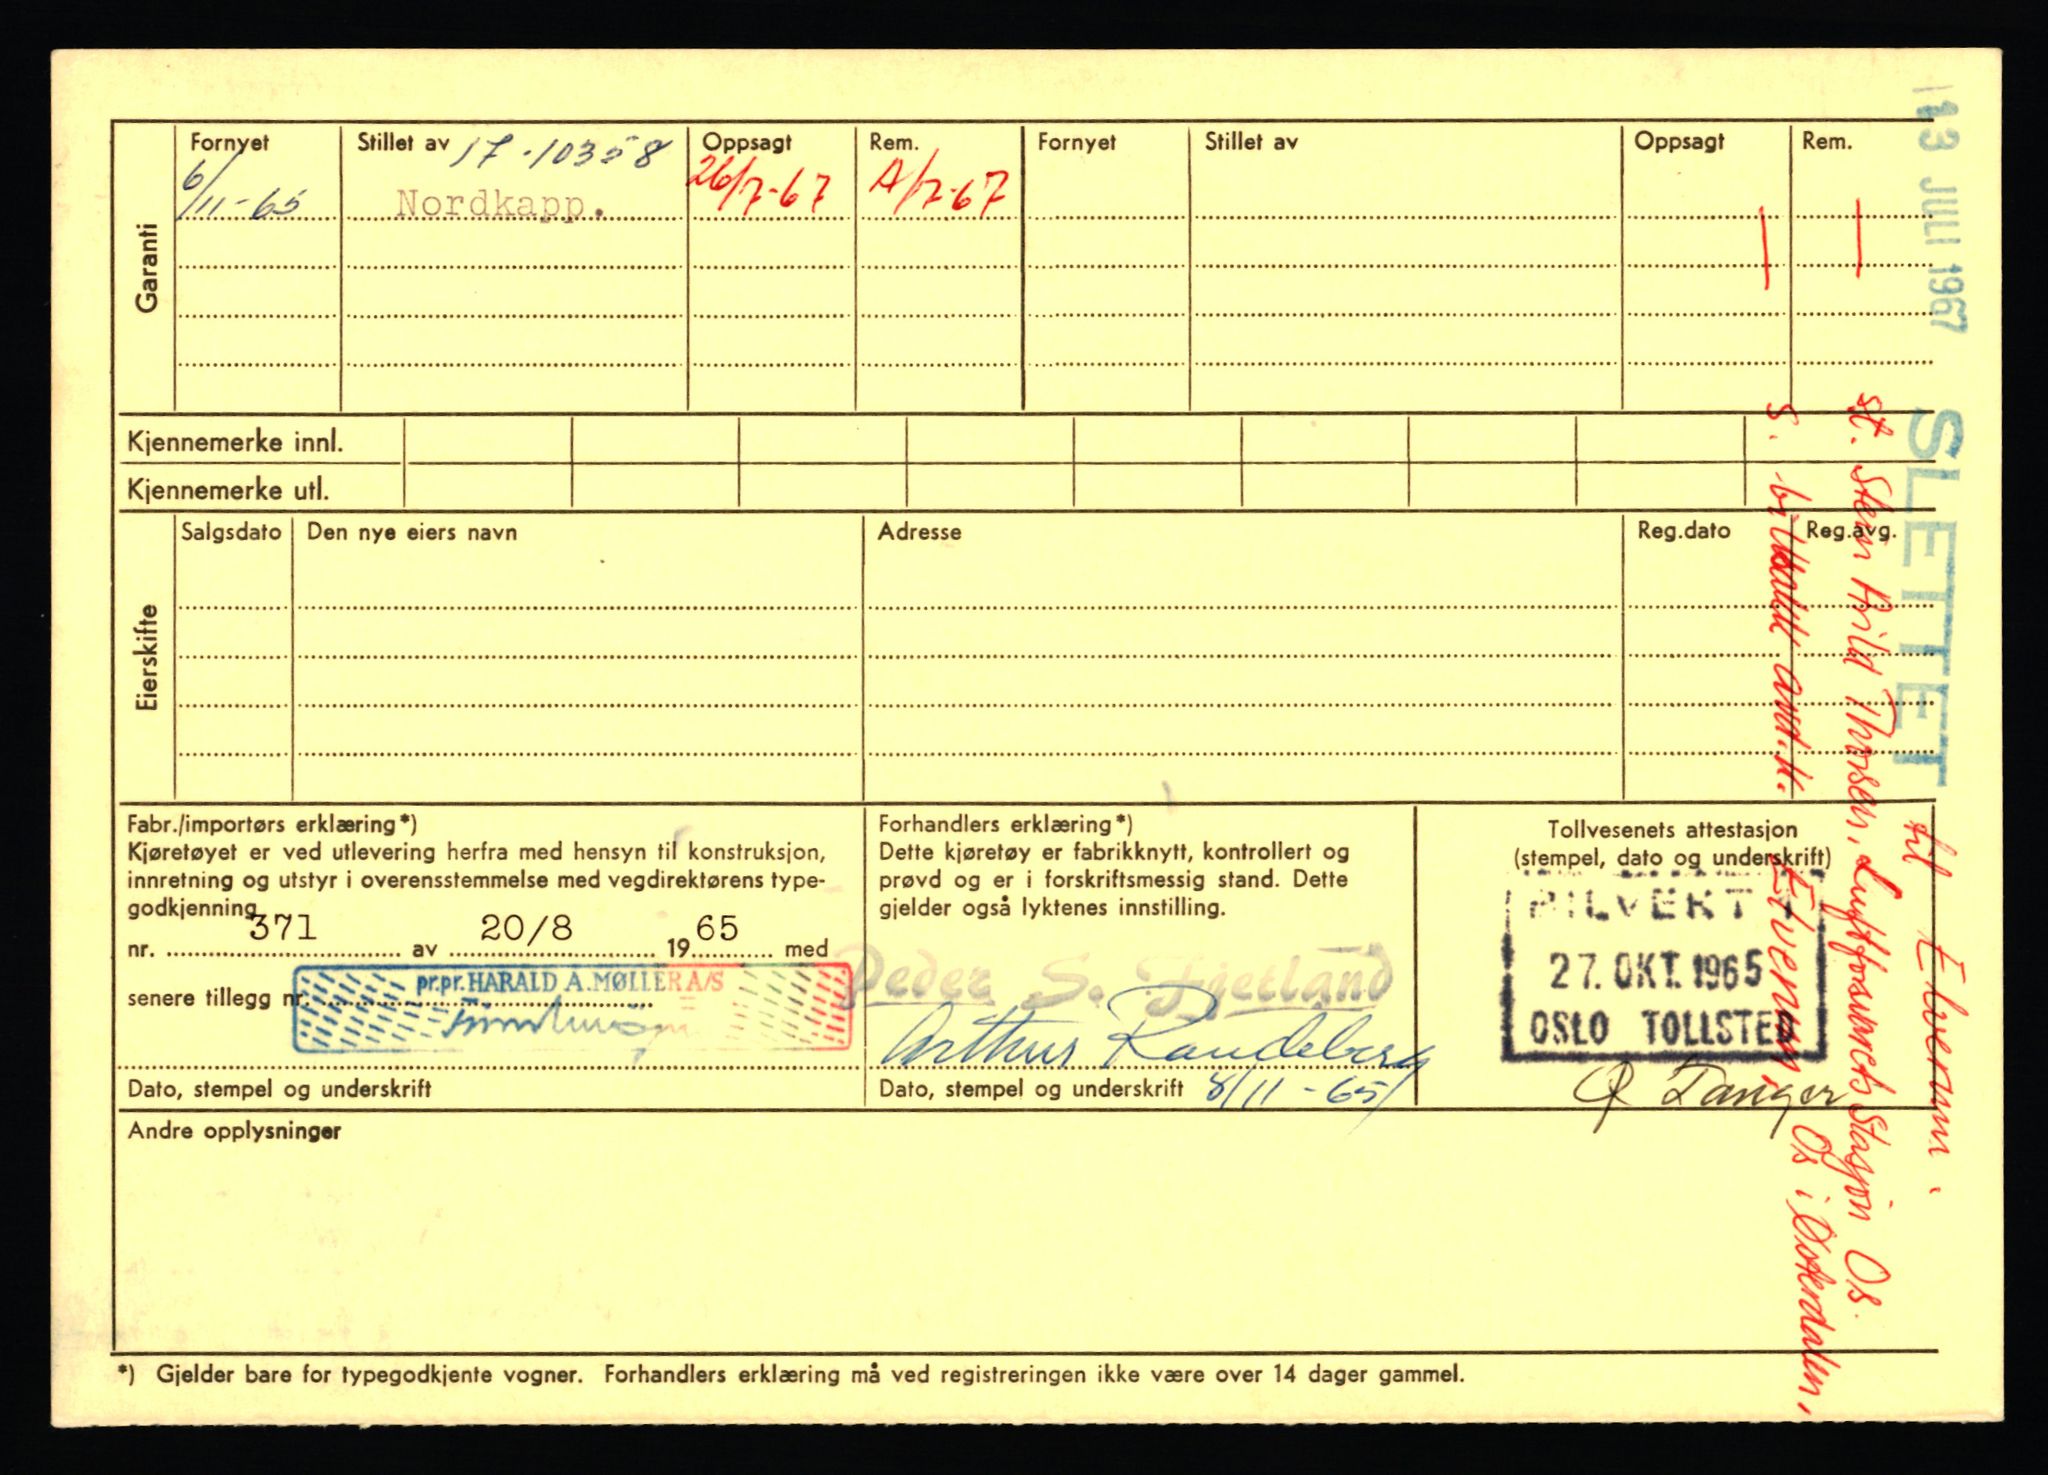 Garanti
Fornyet Stillet av 17-10358 Oppsagt Rem. Fornyet Stillet av Oppsagt Rem.
6/11-65 Nordkapp. 26/7-67 A/7-67
Kjennemerke innl.
Kjennemerke utl.
Eierskifte
Salgsdato Den nye eiers navn Adresse Reg.dato Reg.avg.
Fabr./importørs erklæring*)
Kjøretøyet er ved utlevering herfra med hensyn til konstruksjon,
innretning og utstyr i overensstemmelse med vegdirektørens type-
godkjenning
nr. 371 av 20/8 1965 med
senere tillegg nr.
pr.pr. HARALD A. MØLLER A/S
Dato, stempel og underskrift
Forhandlers erklæring*)
Dette kjøretøy er fabrikknytt, kontrollert og
prøvd og er i forskriftsmessig stand. Dette
gjelder også lyktenes innstilling.
Peder S. Fjetland
Arthur Randeberg
Dato, stempel og underskrift 8/11-65
Tollvesenets attestasjon
(stempel, dato og underskrift)
27. OKT. 1965
OSLO TOLLSTED
Tanger
Andre opplysninger
*) Gjelder bare for typegodkjente vogner. Forhandlers erklæring må ved registreringen ikke være over 14 dager gammel.
13 JULI 1967
SLETTET
til Elverum.
st. Stein Arild Thorsen, Luftforsvarets Stasjon Os.
Elverum, Os i Østerdalen,